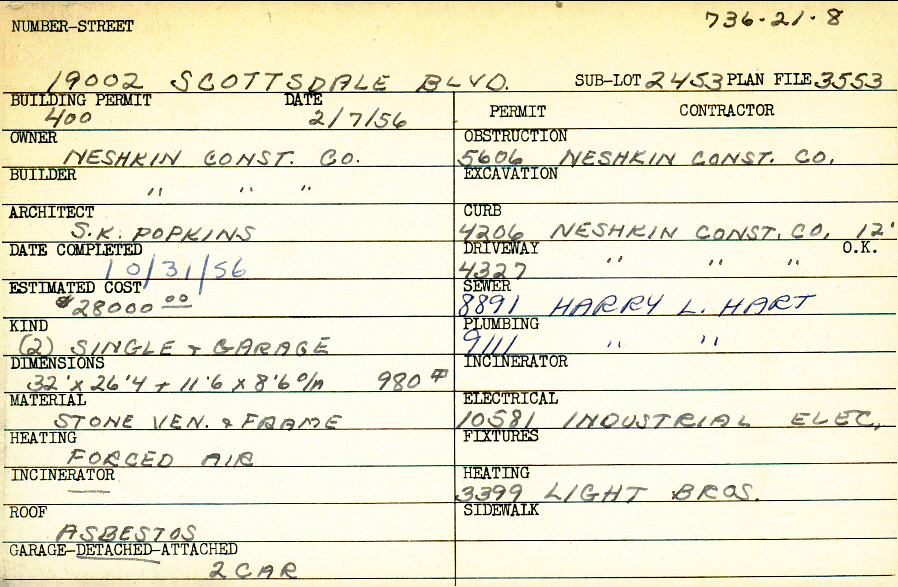 736-21-8
NUMBER-STREET
19002 SCOTTSDALE BLVD.
SUB-LOT 2453 PLAN FILE 3553
BUILDING PERMIT DATE
400 2/7/56
OWNER
NESHKIN CONST. CO.
BUILDER
" " "
ARCHITECT
S.K. POPKINS
DATE COMPLETED
10/31/56
ESTIMATED COST
$28000 00
KIND
(2) SINGLE + GARAGE
DIMENSIONS
32'x 26'4 + 11'6 x 8'6 o/h 980
MATERIAL
STONE VEN. & FRAME
HEATING
FORCED AIR
INCINERATOR
ROOF
ASBESTOS
GARAGE-DETACHED-ATTACHED
2 CAR
PERMIT CONTRACTOR
OBSTRUCTION
5606 NESHKIN CONST. CO.
EXCAVATION
CURB
4206 NESHKIN CONST. CO, 12'
DRIVEWAY O.K.
4327 " " "
SEWER
8891 HARRY L. HART
PLUMBING
9111 " "
INCINERATOR
ELECTRICAL
10581 INDUSTRIAL ELEC,
FIXTURES
HEATING
3399 LIGHT BROS.
SIDEWALK